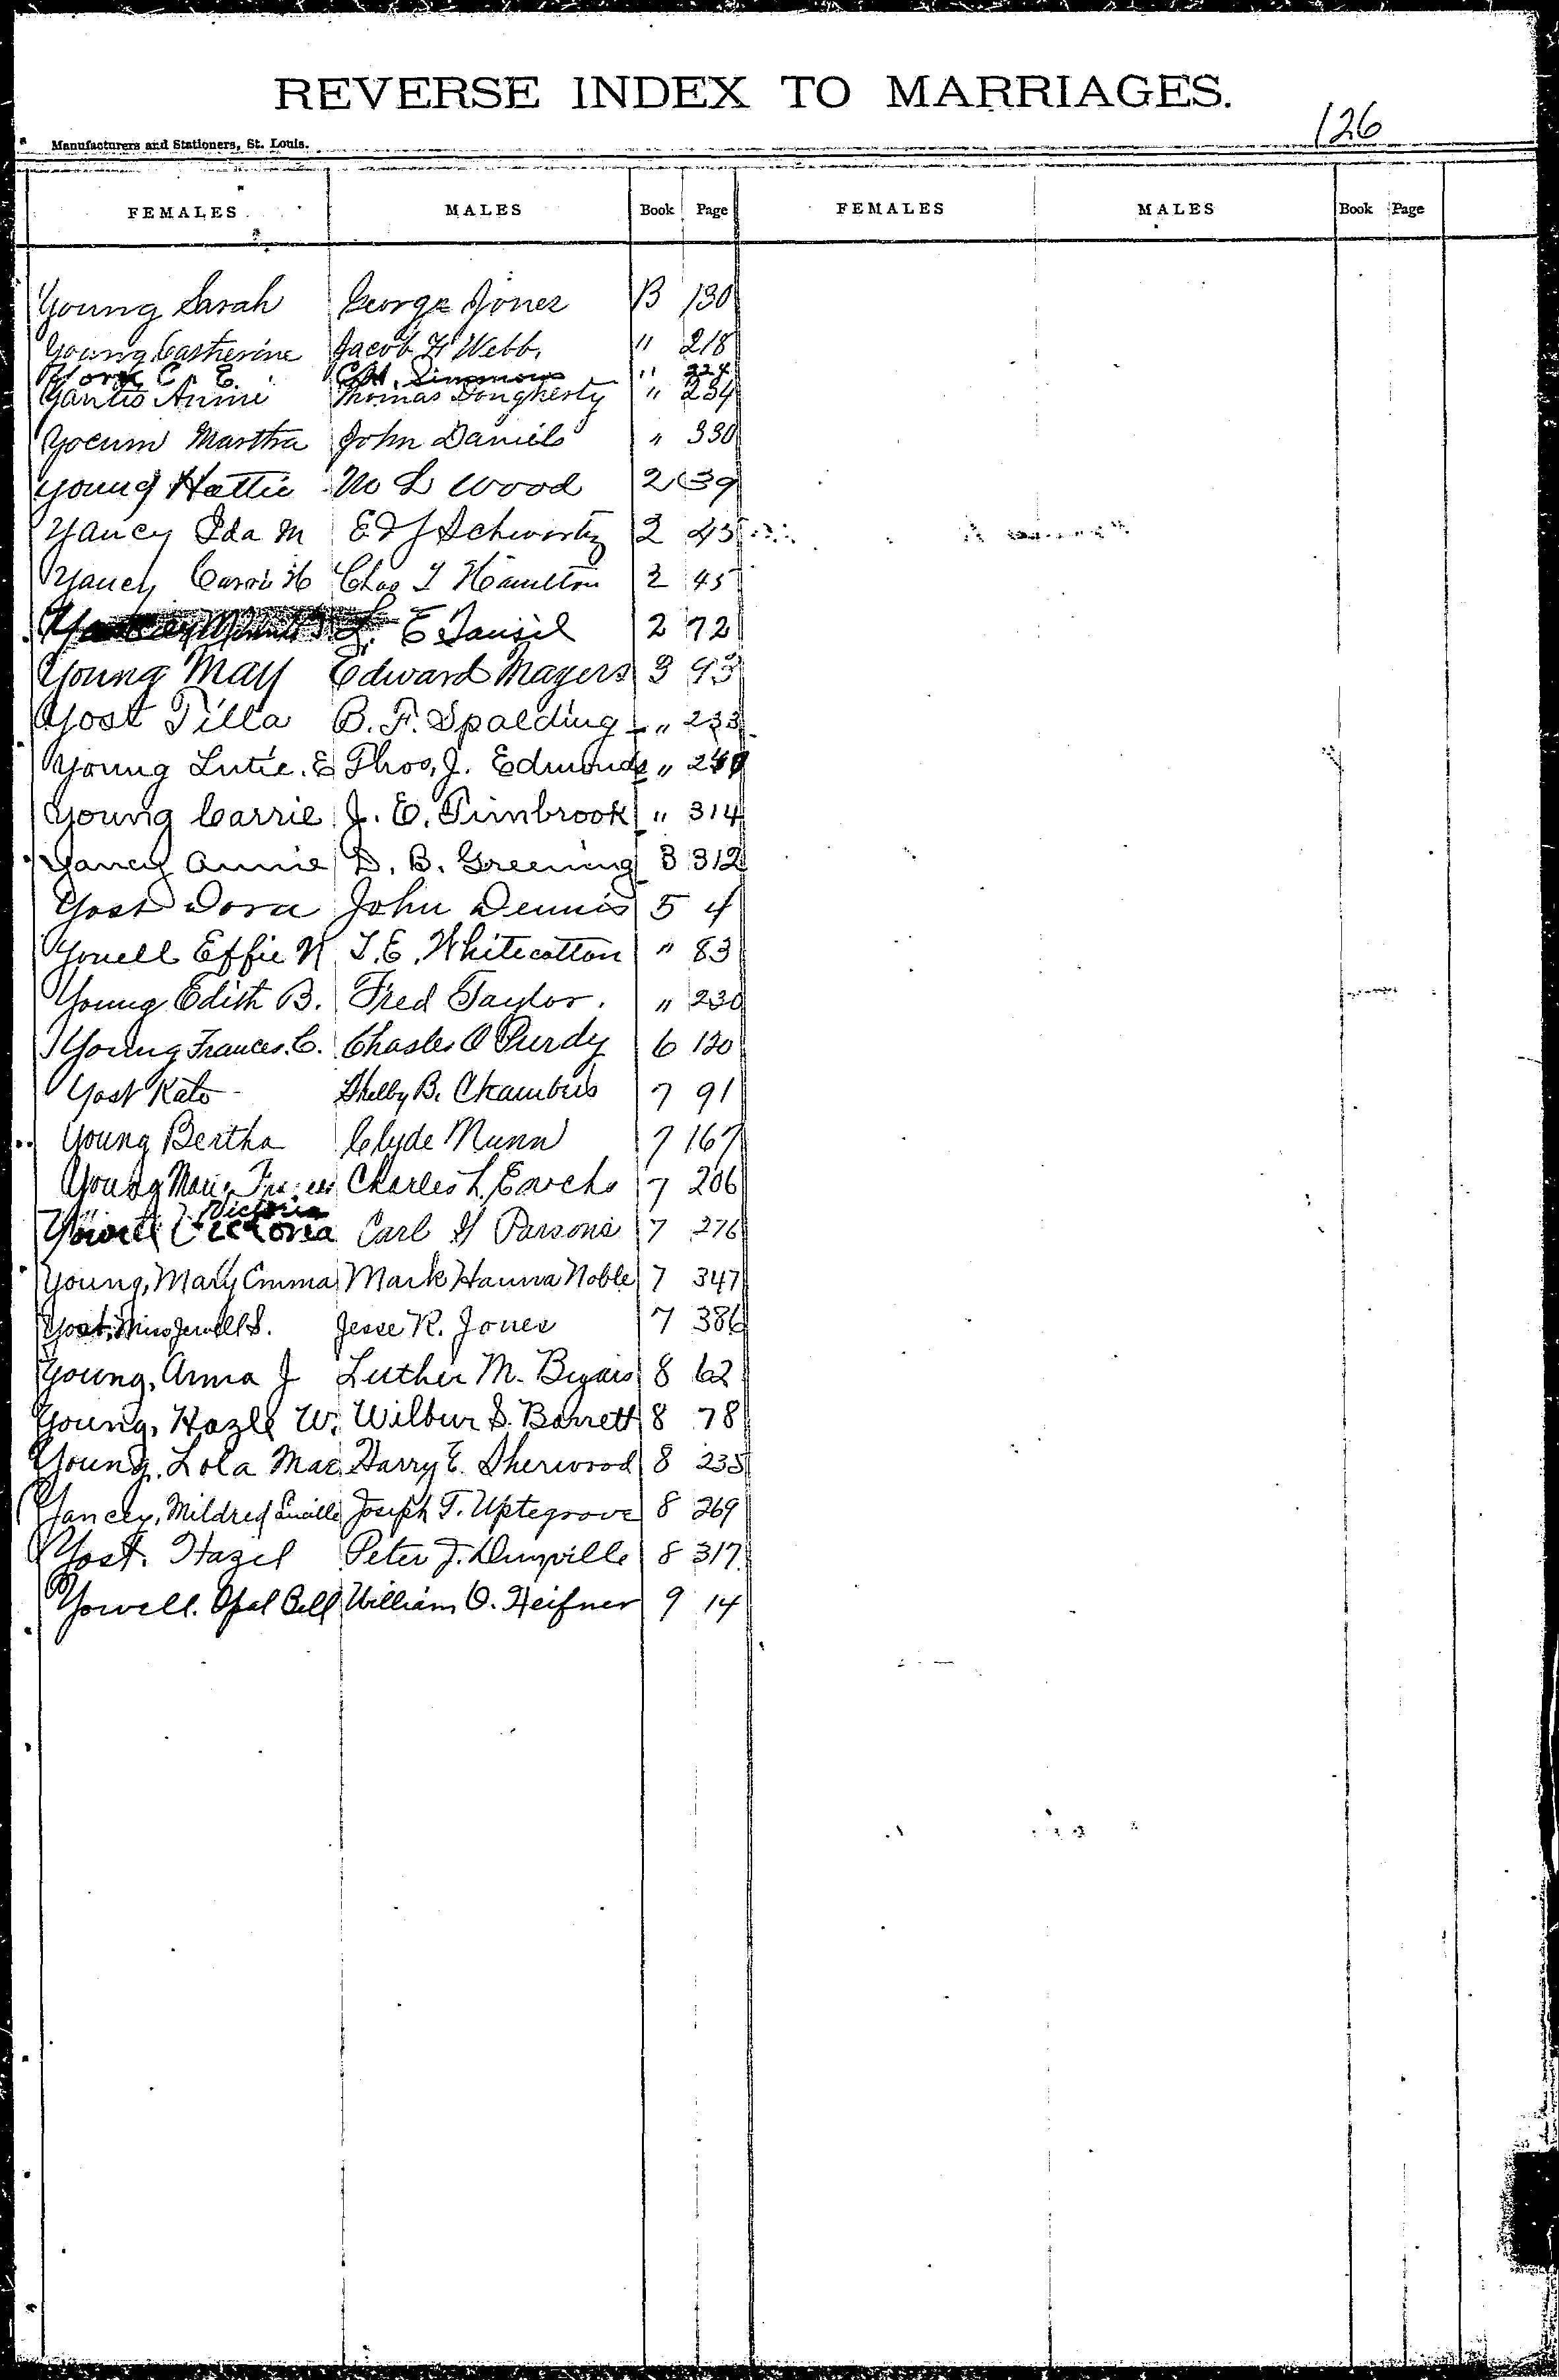 REVERSE INDEX TO MARRIAGES.
126
Manufacturers and Stationers, St. Louis.
FEMALES MALES Book Page FEMALES MALES Book Page
Young Sarah George Jones B 130
Young Catherine Jacob H Webb. " 218
York C. E. C.H. Simmons " 224
Yantis Annie Thomas Dougherty " 234
Yocum Martha John Daniels " 330
Young Hattie M L Wood 2 39
Yancy Ida M Ed J Schwartz 2 43
Yancy Carri H Chas T Hamilton 2 45
L. E Tansil 2 72
Young May Edward Mayers 3 93
Yost Tilla B. F. Spalding " 233
Young Lutie. E Thos, J. Edmonds "
Young Carrie J. E. Timbrook " 314
Yancy Annie D. B. Greening 3 312
Yost Dora John Dennis 5 4
Yowell Effie N T. E. Whitecotton " 83
Young Edith B. Fred Taylor. " 230
Young Frances. C. Charles O Purdy 6 120
Yost Kate Shelby B. Chambers 7 91
Young Bertha Clyde Nunn 7 167
Young Charles L. Enochs 7 206
Victoria
Yowell Victoria Carl G Parsons 7 276
Young, Mary Emma Mark Hanna Noble 7 347
Yost, Miss Jewell S. Jesse R. Jones 7 386
Young, Anna J Luther M. Byars 8 62
Young, Hazle W. Wilbur S. Barrett 8 78
Young, Lola Mae Harry E. Sherwood 8 235
Yancey, Mildred Lucille Joseph T. Uptegrove 8 269
Yost. Hazel Peter J. Dunville 8 317
Yowell. Opal Bell William O. Heifner 9 14